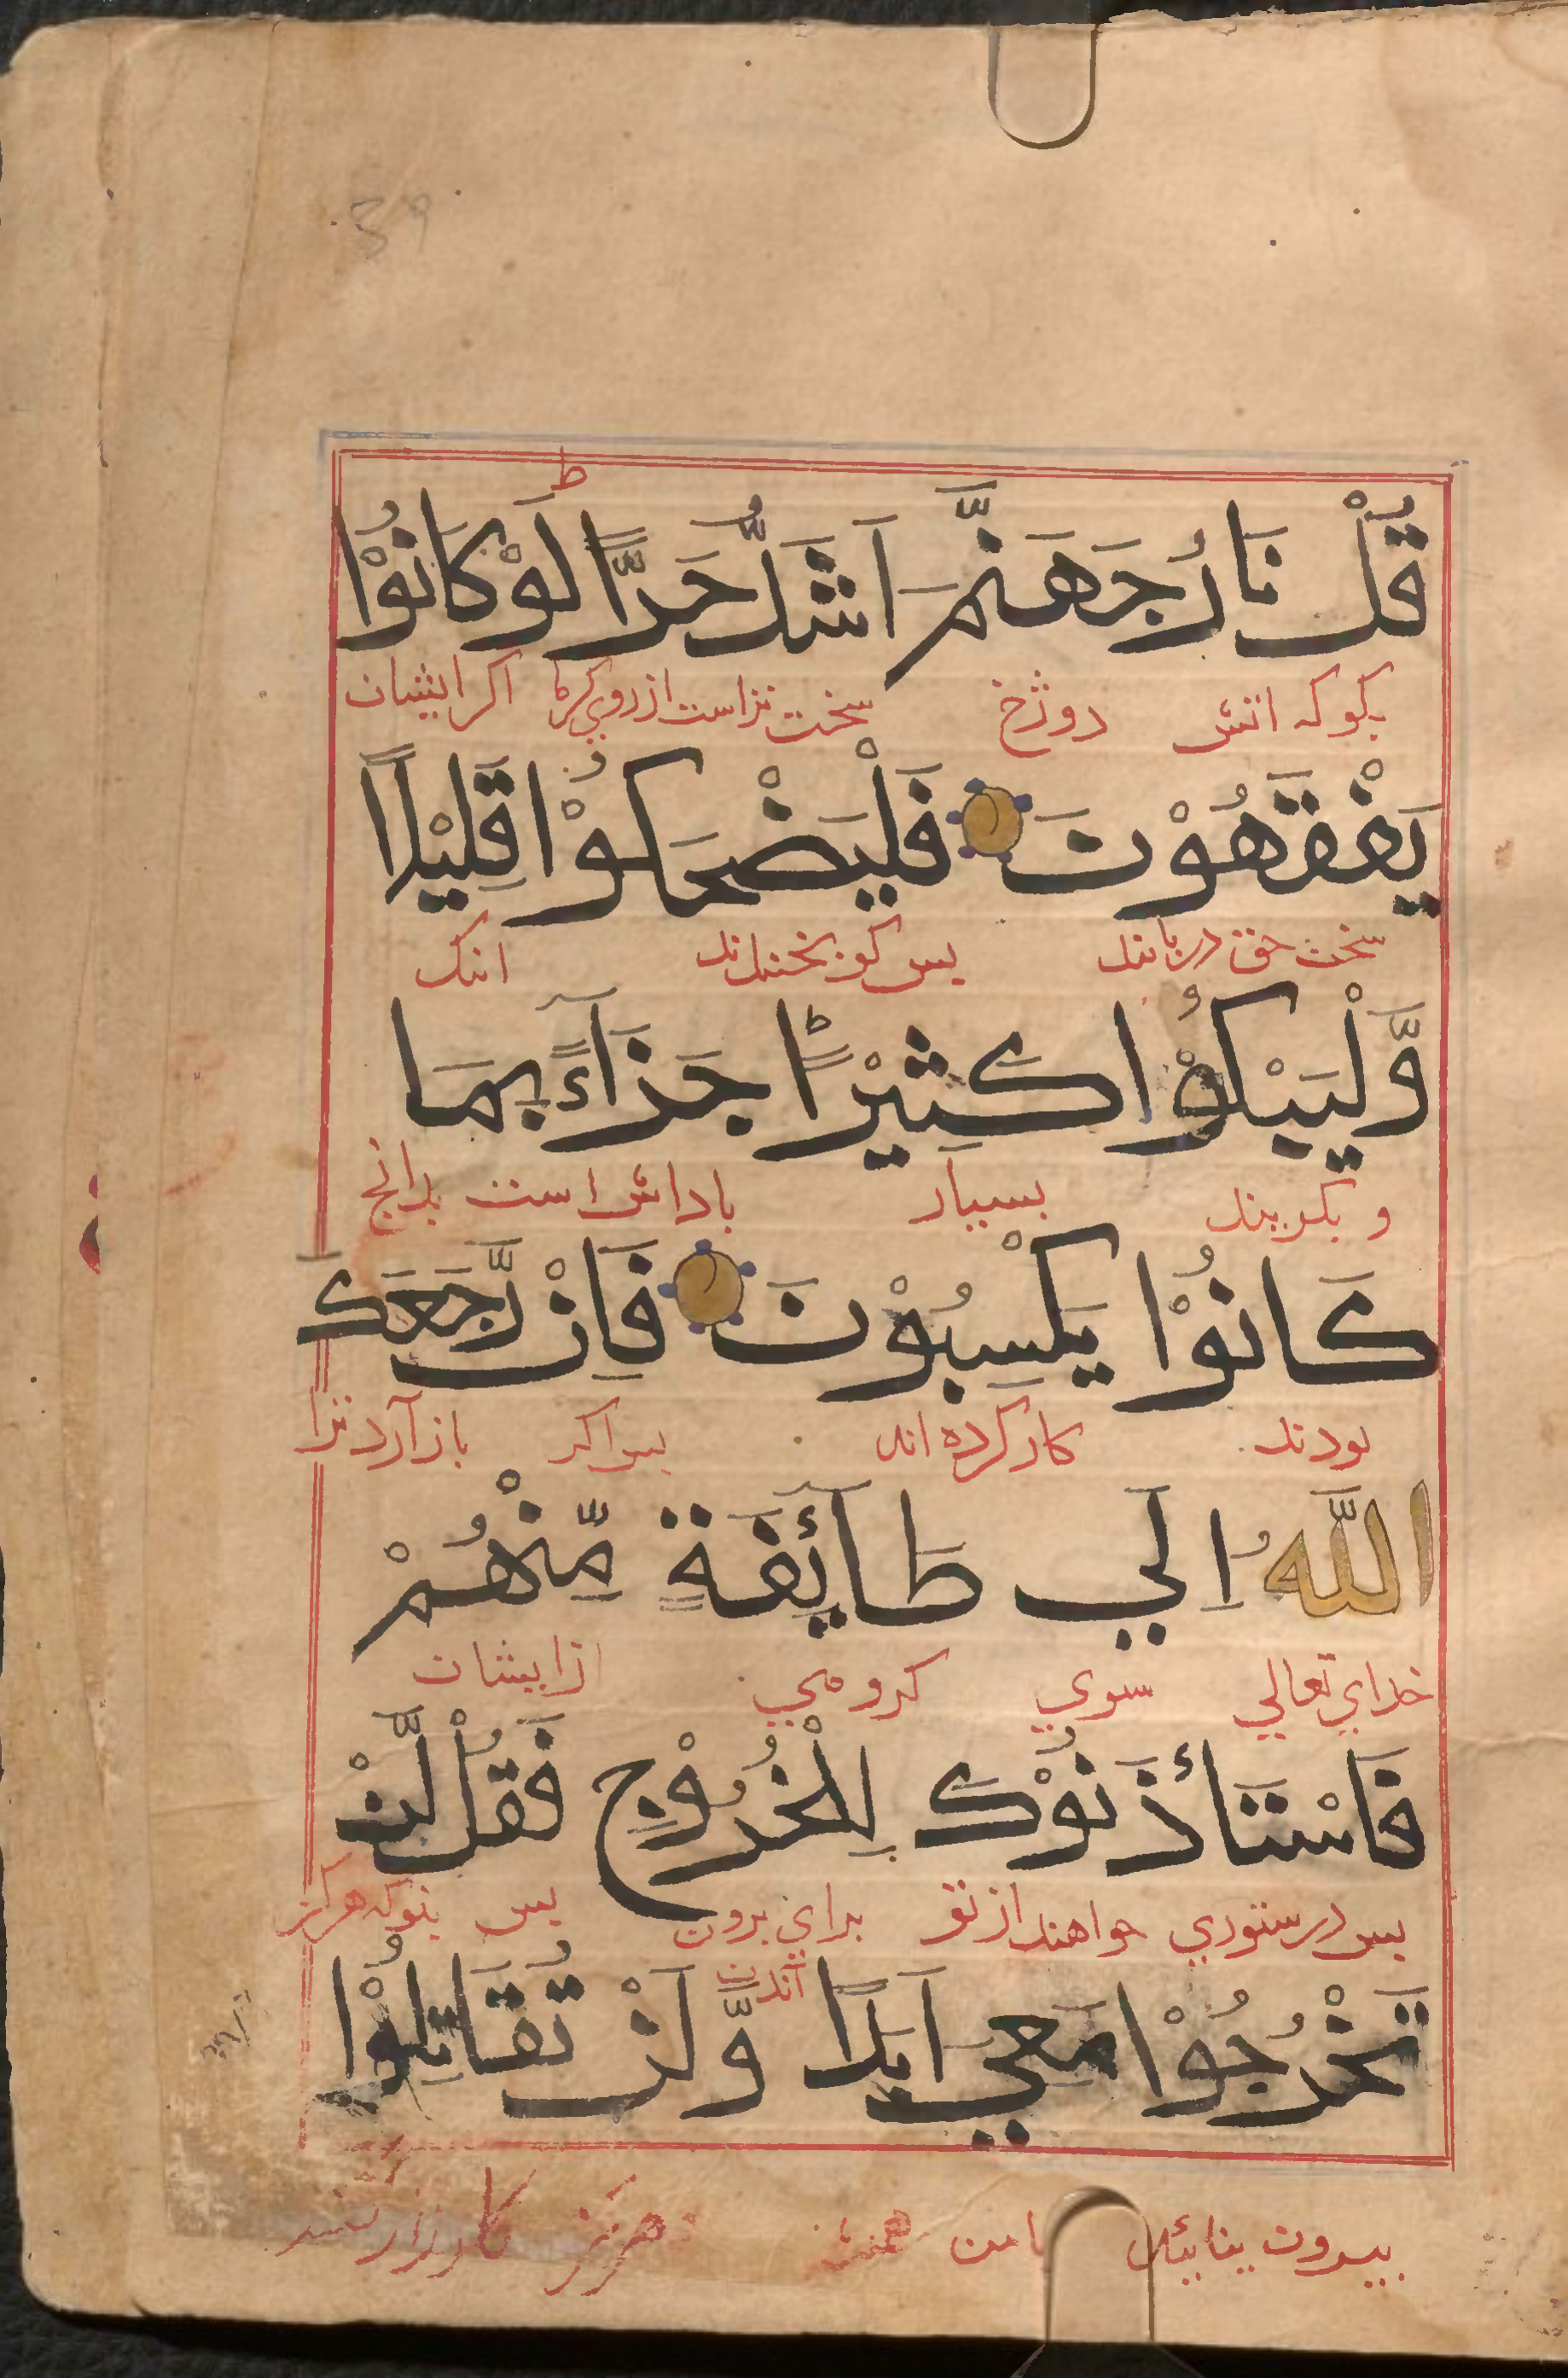 39
ط
قُلْ نَارُ جَهَنَّمَ اَشَدُّ حَرًّا لَوْ كَانُوْا
بکو که اتش دوزخ سخت تر است از روی کرما اکر ایشان
يَفْقَهُوْنَ فَلْيَضْحَكُوْا قَلِيْلًا
سخن حق دریابند پس کو بخندند اندک
وَّلْيَبْكُوْا كَثِيْرًا ط جَزَآءً بِمَا
و بکریند بسیار باداش است بدانج
كَانُوْا يَكْسِبُوْنَ فَاِنْ رَّجَعَكَ
بودند کار کرده اند پس اکر باز آرد ترا
اللّٰهُ اِلَي طَآئِفَةٍ مِّنْهُمْ
خدای تعالی سوی کروهی از ایشان
فَاسْتَأْذَنُوْكَ لِلْخُرُوْجِ فَقُلْ لَّنْ
پس درستوری خواهند از تو برای برون پس بکو که هرکز
آمدن
تَخْرُجُوْا مَعِيَ اَبَدًا وَّلَنْ تُقَاتِلُوْا
بیرون نیائید با من هرکز کارزار کنید